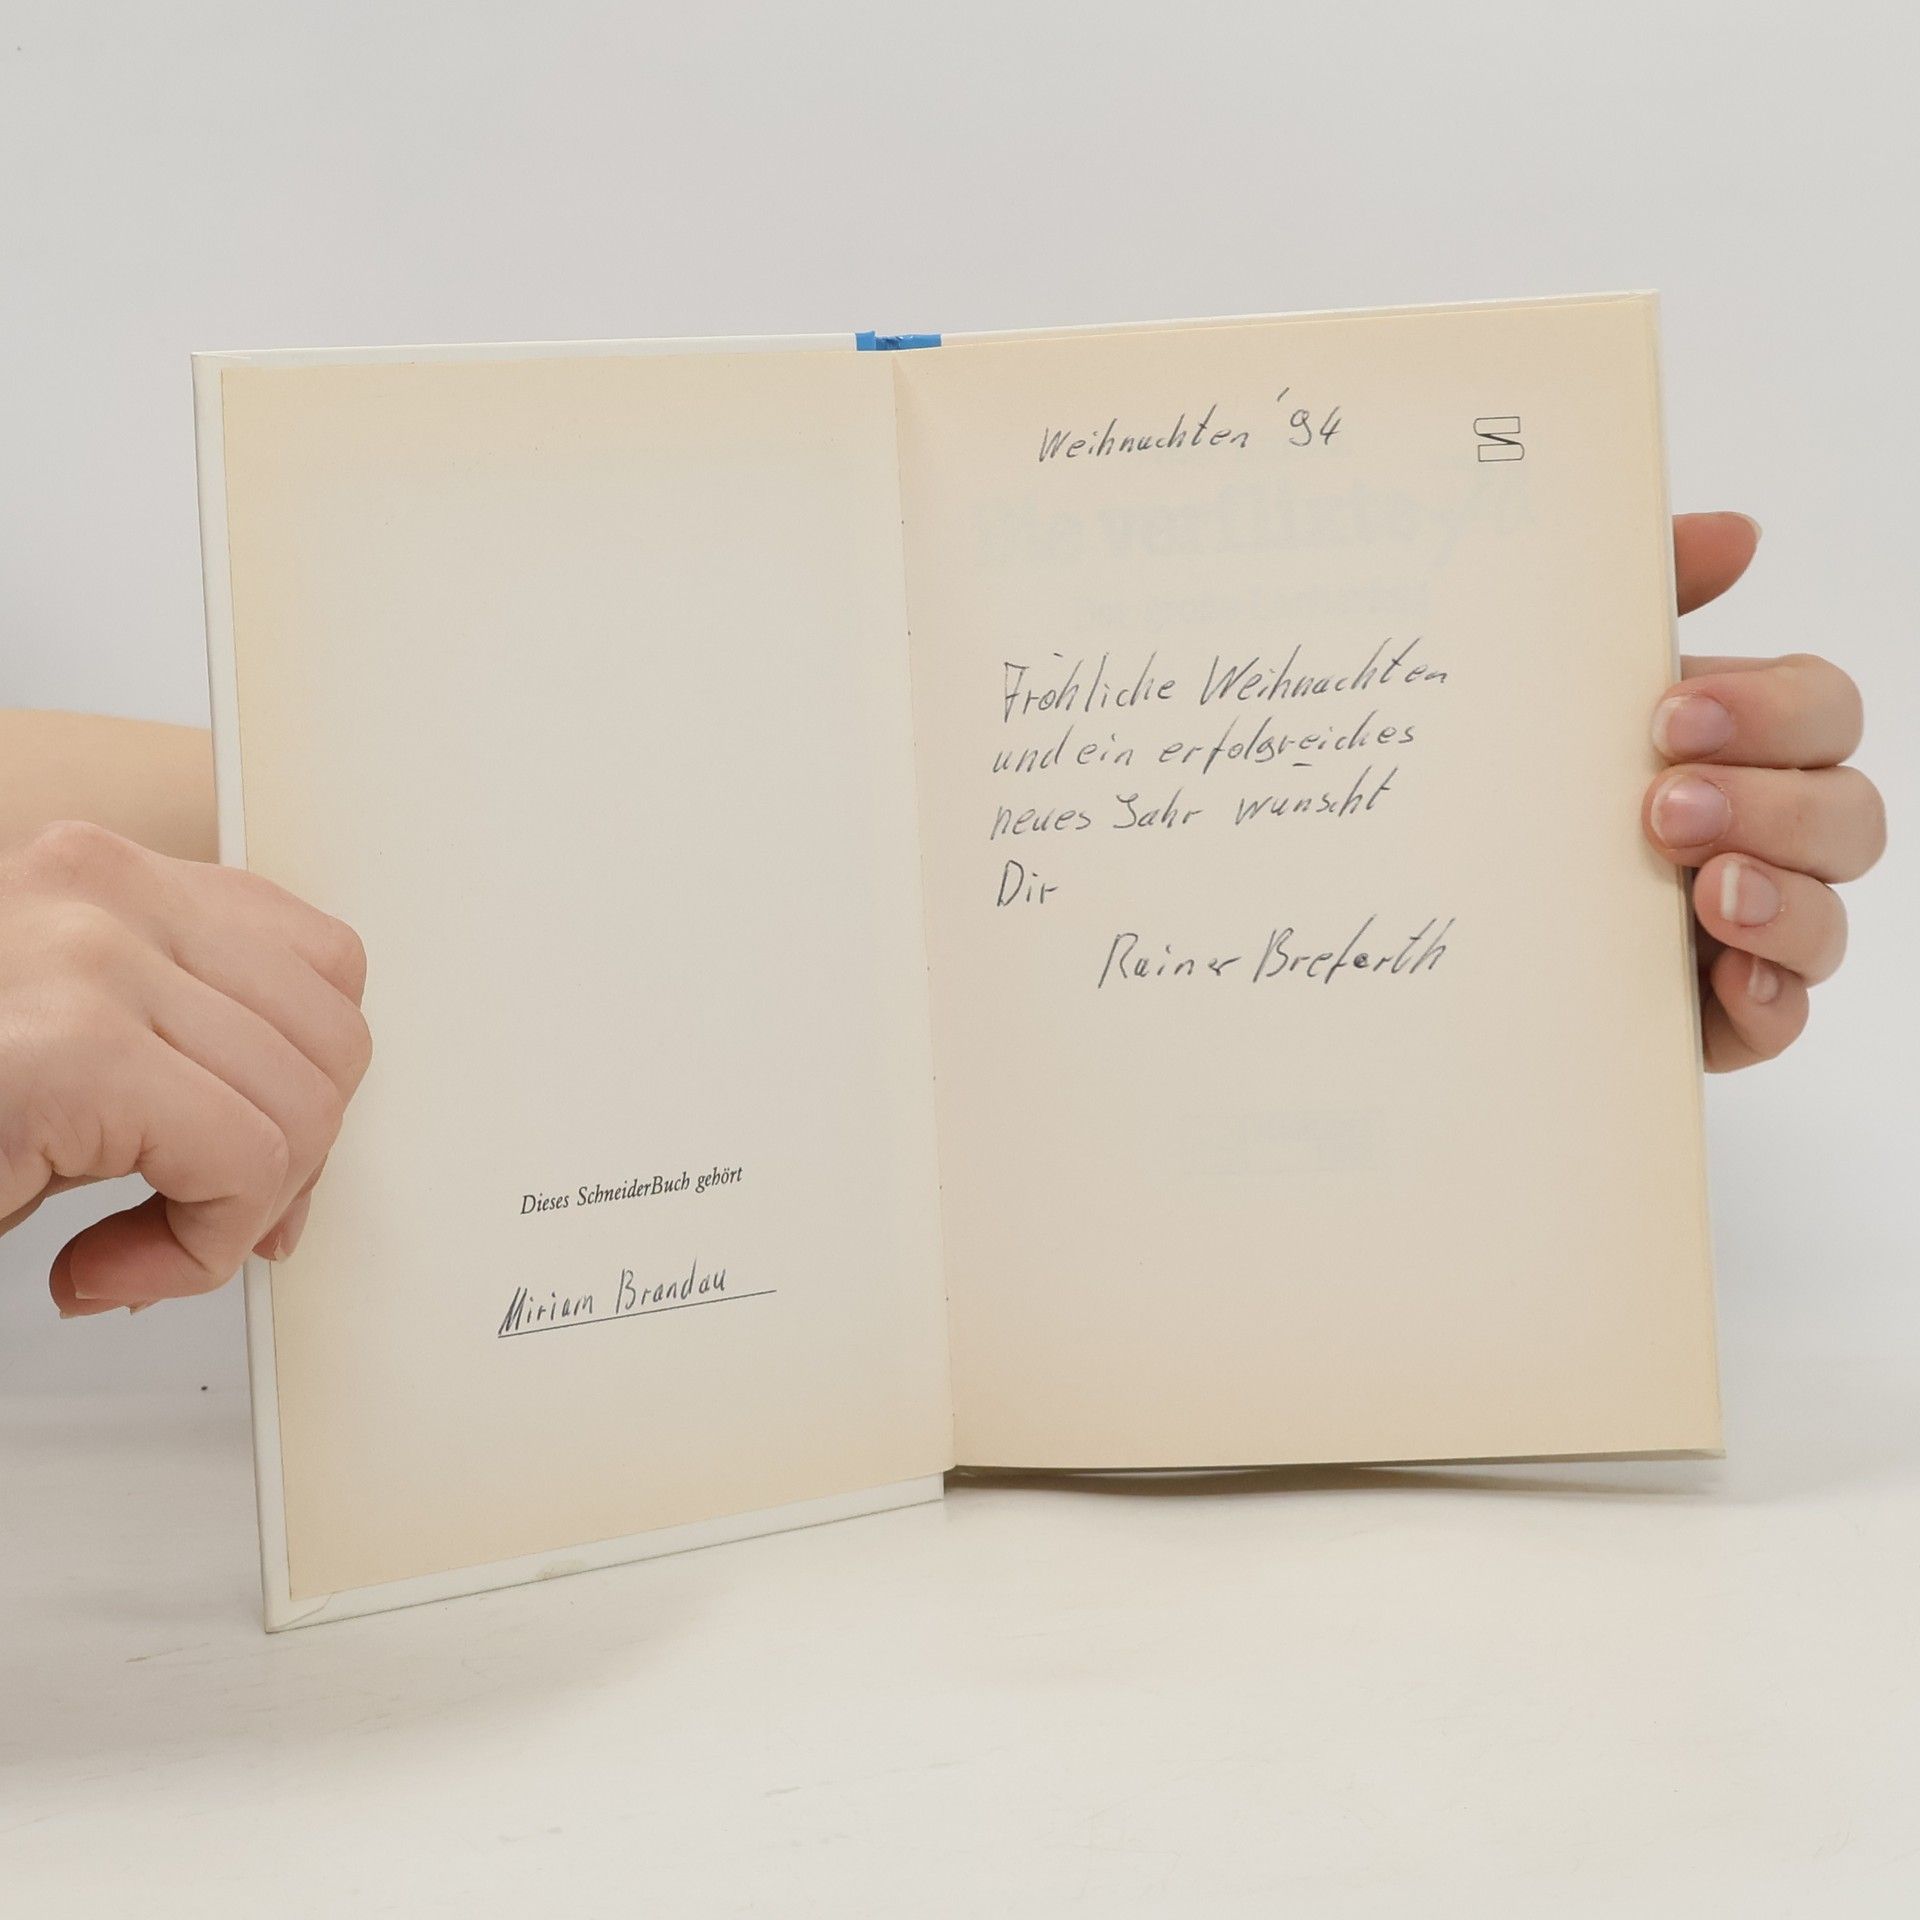 Dieses SchneiderBuch gehört
Miriam Brandau
Weihnachten '94
Fröhliche Weihnachten
und ein erfolgreiches
neues Jahr wünscht
Dir
Rainer